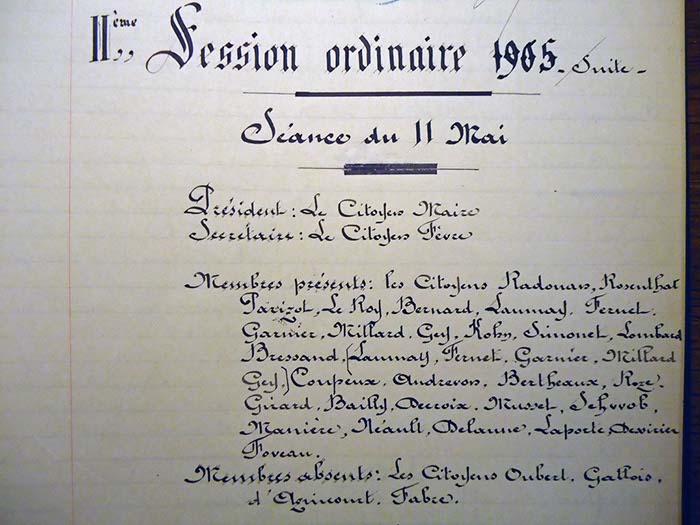 IIème Session ordinaire 1905. Suite -
Séance du 11 Mai
Président : Le Citoyen Maire
Secrétaire : Le Citoyen Fèvre
Membres présents : les Citoyens Radouan, Rosenthal
Parizot, Le Roy, Bernard, Launay, Fernet,
Garnier, Millard, Gey, Kohn, Simonet, Lombard
Bressand, (Launay, Fernet, Garnier, Millard
Gey,) Coupeux, Andrevon, Bertheaux, Roze,
Girard, Bailly, Decroix, Musset, Schwob,
Manière, Néault, Delaune, Laporte, Devirier
Foveau.
Membres absents : Les Citoyens Oubert, Gallois,
d'Agincourt, Fabre.